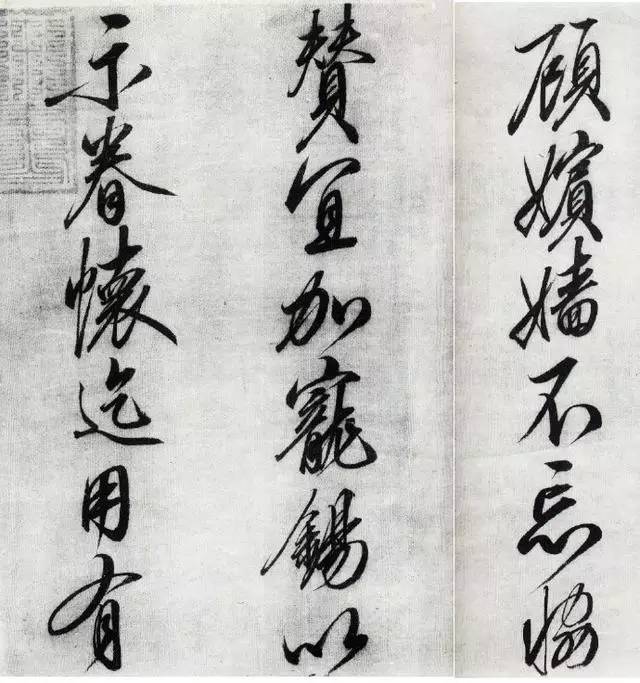 顧嬪嬙不忘恊
賛宜加寵錫以
示眷懷迄用有